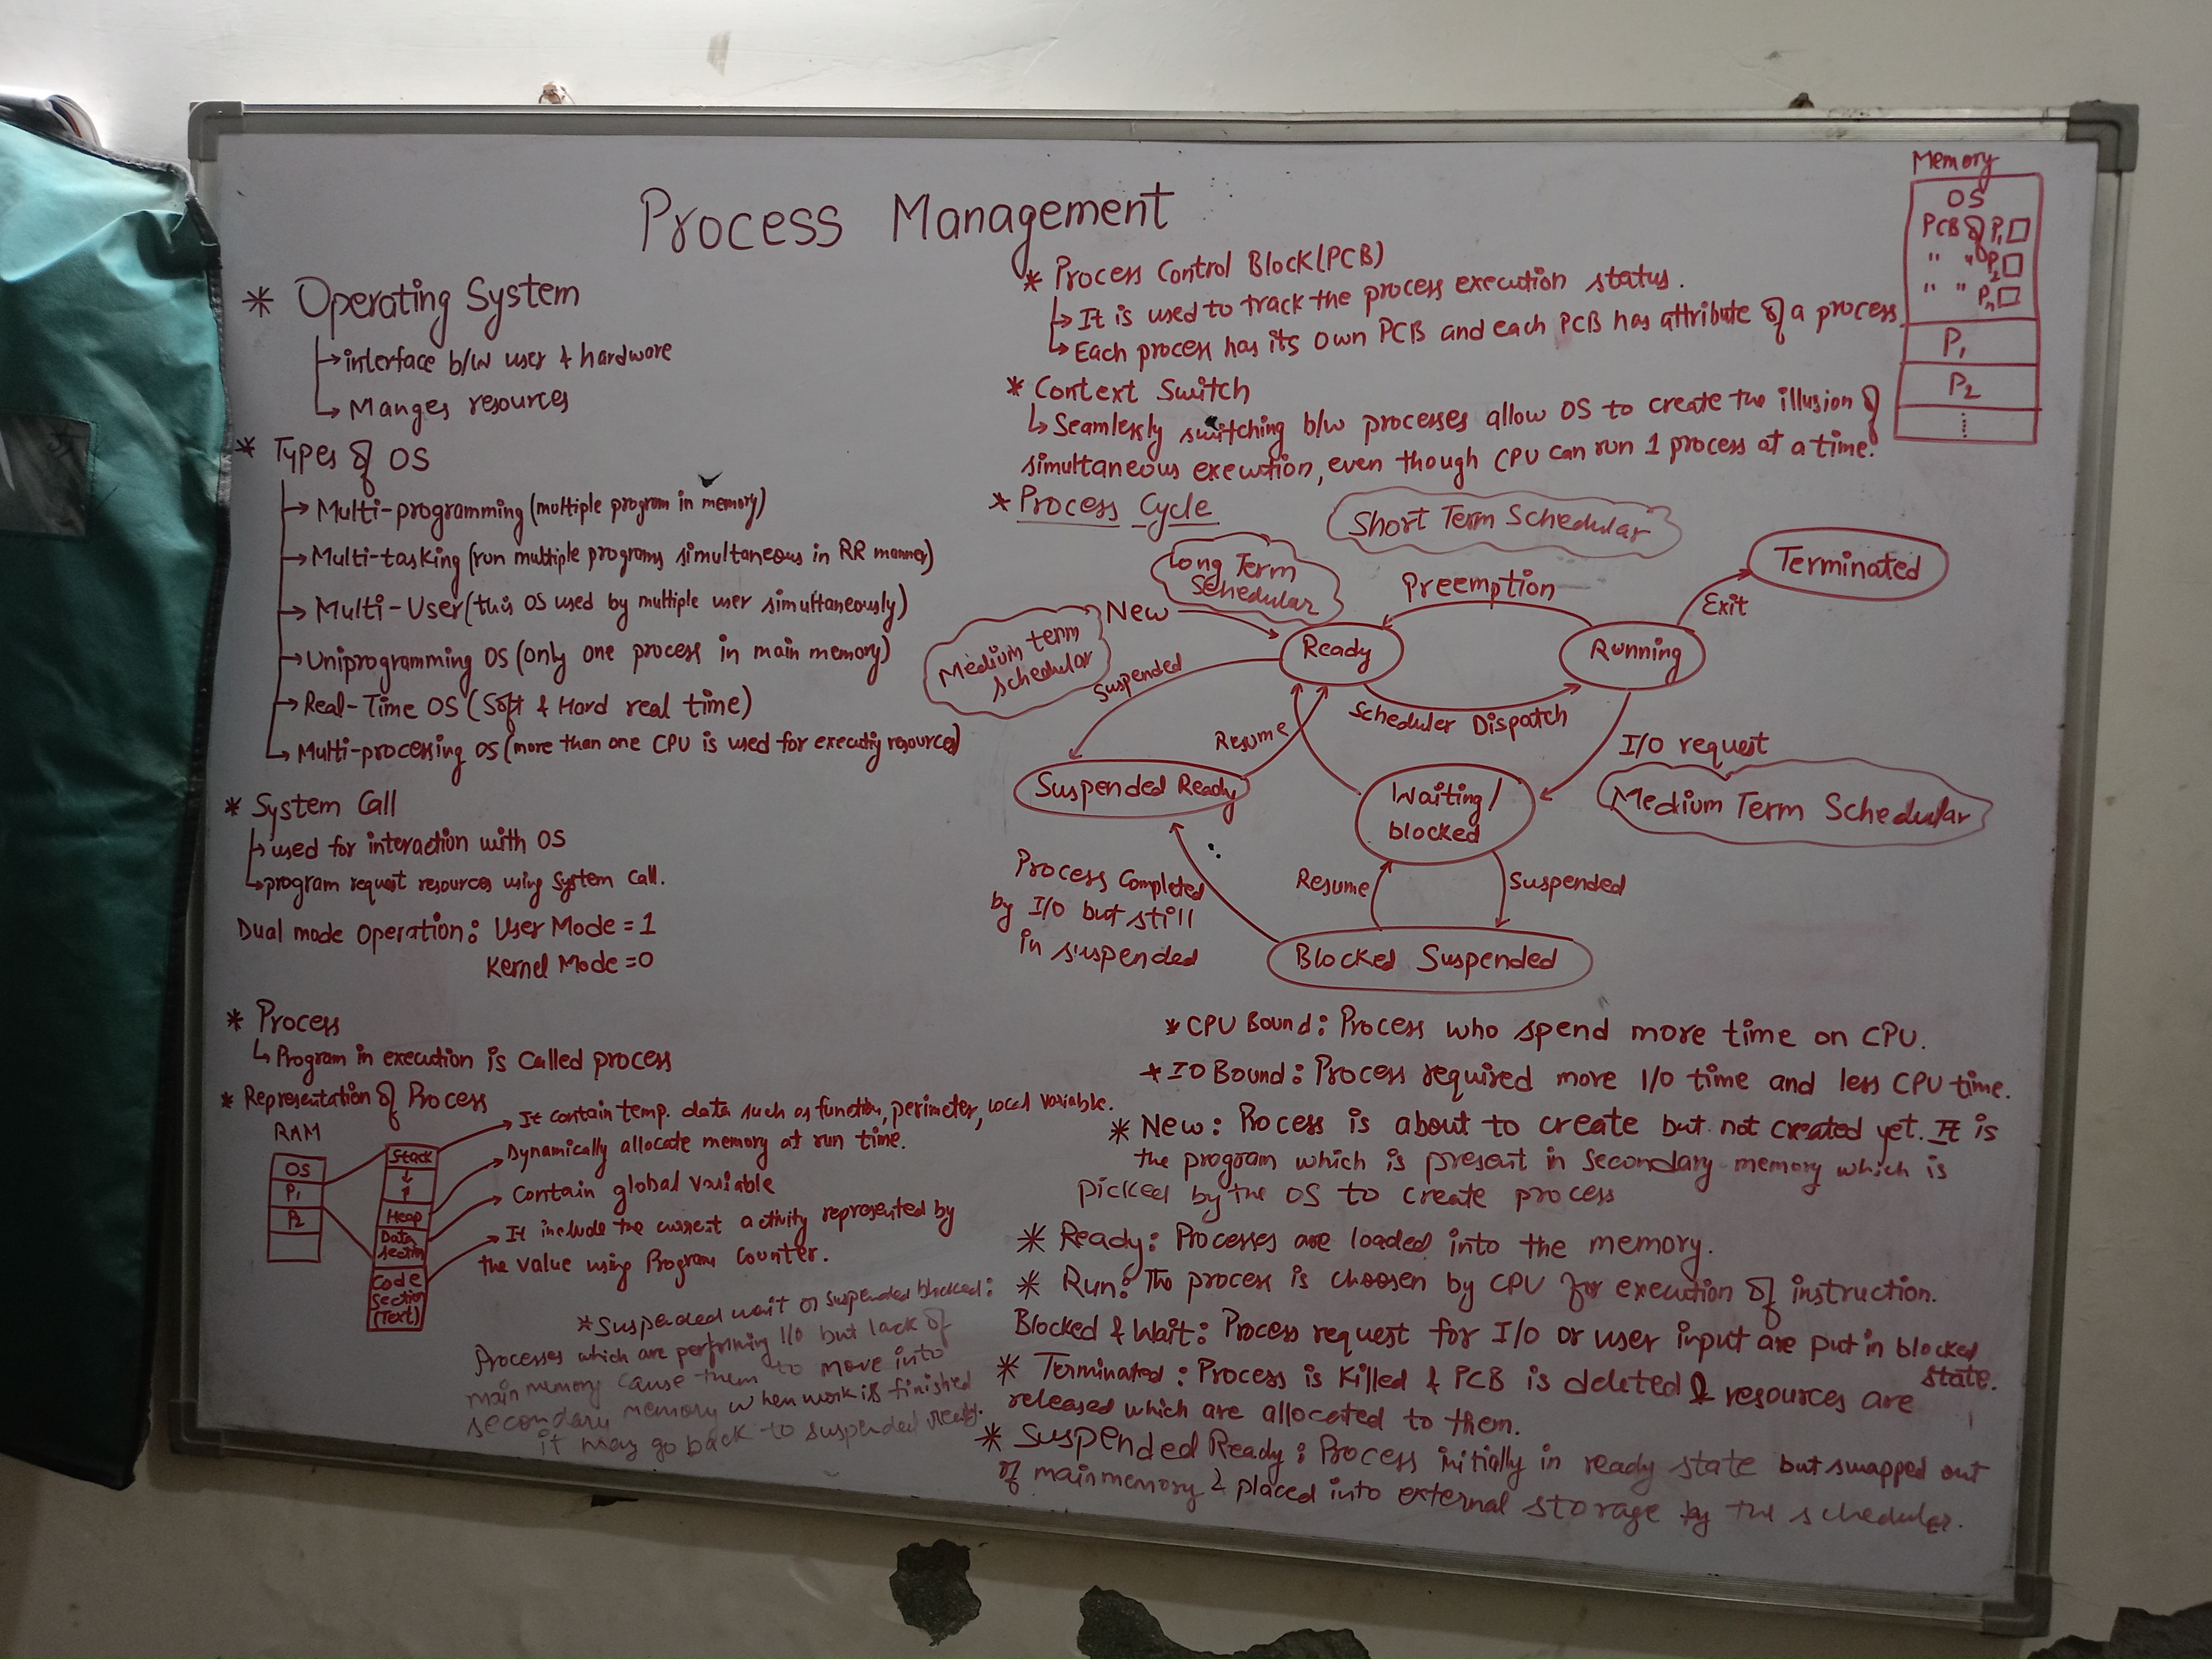 Process Management
* Operating System
→ interface b/w user & hardware
→ Manges resources
* Types of OS
→ Multi-programming (multiple program in memory)
→ Multi-tasking (run multiple programs simultaneous in RR manner)
→ Multi-User (this OS used by multiple user simultaneously)
→ Uniprogramming OS (only one process in main memory)
→ Real-Time OS (Soft & Hard real time)
→ Multi-processing OS (more than one CPU is used for executig resources)
* System Call
→ used for interaction with OS
→ program request resources using System Call.
Dual mode Operation: User Mode = 1
Kernel Mode = 0
* Process
→ Program in execution is called process
* Representation of Process
RAM
OS
P1
P2
Stack
↓
↑
Heap
Data
section
Code
Section
(Text)
→ It contain temp. data such as function, perimeter, local variable.
→ Dynamically allocate memory at run time.
→ Contain global variable
→ It include the current activity represented by
the value using Program Counter.
* Suspended wait or suspended blocked:
Processes which are performing I/O but lack of
main memory cause them to move into
secondary memory when work is finished
it may go back to suspended ready.
* Process Control Block (PCB)
→ It is used to track the process execution status.
→ Each process has its own PCB and each PCB has attribute of a process.
* Context Switch
→ Seamlessly switching b/w processes allow OS to create the illusion of
simultaneous execution, even though CPU can run 1 process at a time.
Memory
OS
PCB of P1
" " P2
" " Pn
P1
P2
⋮
* Process Cycle
Short Term Schedular
Long Term
Schedular
Medium term
schedular
New
Preemption
Terminated
Exit
Ready
Running
Suspended
Scheduler Dispatch
Resume
I/O request
Suspended Ready
Waiting/
blocked
Medium Term Schedular
Process Completed
by I/O but still
in suspended
Resume
Suspended
Blocked Suspended
* CPU Bound: Process who spend more time on CPU.
* IO Bound: Process required more I/O time and less CPU time.
* New: Process is about to create but not created yet. It is
the program which is present in secondary memory which is
picked by the OS to create process
* Ready: Processes are loaded into the memory.
* Run: The process is choosen by CPU for execution of instruction.
Blocked & Wait: Process request for I/O or user input are put in blocked
state.
* Terminated: Process is killed & PCB is deleted & resources are
released which are allocated to them.
* Suspended Ready: Process initially in ready state but swapped out
of main memory & placed into external storage by the scheduler.